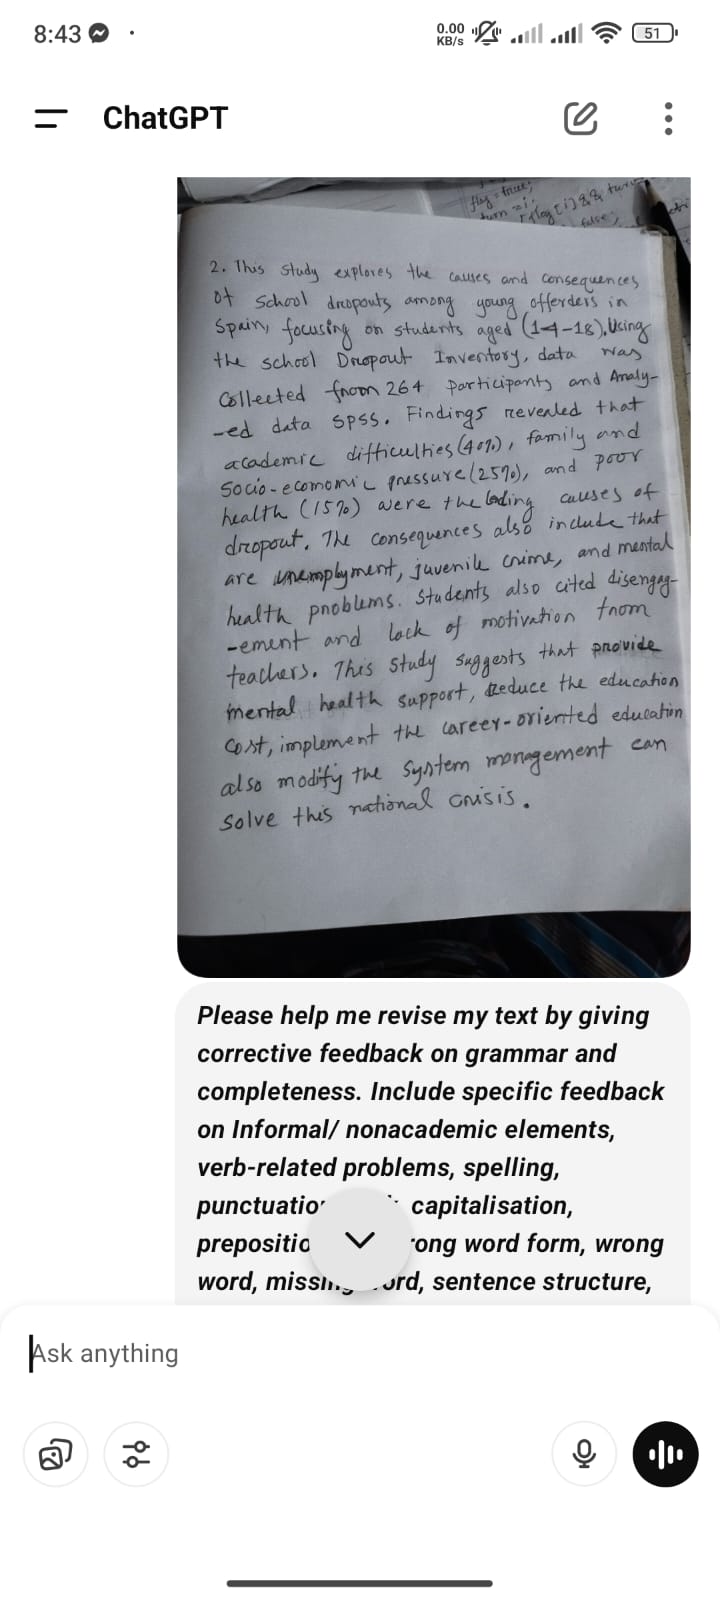 8:43
0.00
KB/s
51
ChatGPT
flag = true;
turn = i;
flag[i] && turn
false;
2. This study explores the causes and consequences
of school dropouts among young offerders in
Spain, focusing on students aged (14-18). Using
the school Dropout Inventory, data was
Collected from 264 participants and Analy-
-ed data SPSS. Findings revealed that
academic difficulties (40%), family and
Socio-ecomomic pressure (25%), and poor
health (15%) were the lading causes of
dropout. The consequences also include that
are unemplyment, juvenile crime, and mental
health problems. Students also cited disengag-
-ement and lack of motivation from
teachers. This study suggests that provide
mental health support, reduce the education
cost, implement the career-oriented education
also modify the system management can
solve this national crisis.
Please help me revise my text by giving
corrective feedback on grammar and
completeness. Include specific feedback
on Informal/ nonacademic elements,
verb-related problems, spelling,
capitalisation,
wrong word form, wrong
word, sentence structure,
Ask anything